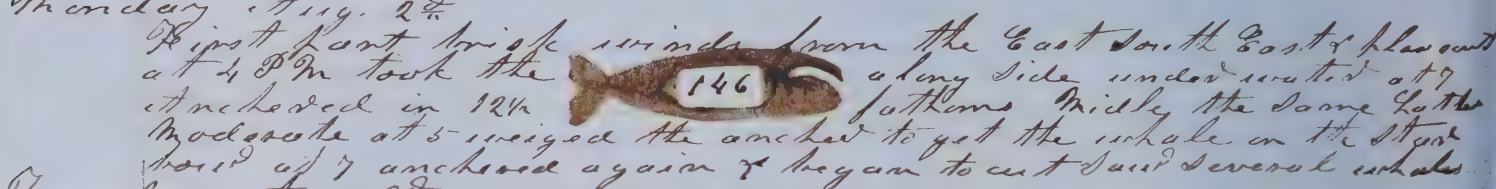 Monday Aug. 2d
First part brisk winds from the East South East & pleasant
at 4 PM took the 146 along side under water at 7
Anchered in 12½ fathoms Midle the Same Latter
Moderate at 5 weiged the ancher to get the whale on the Star
bow at 7 anchered again & began to cut Saw Several whales